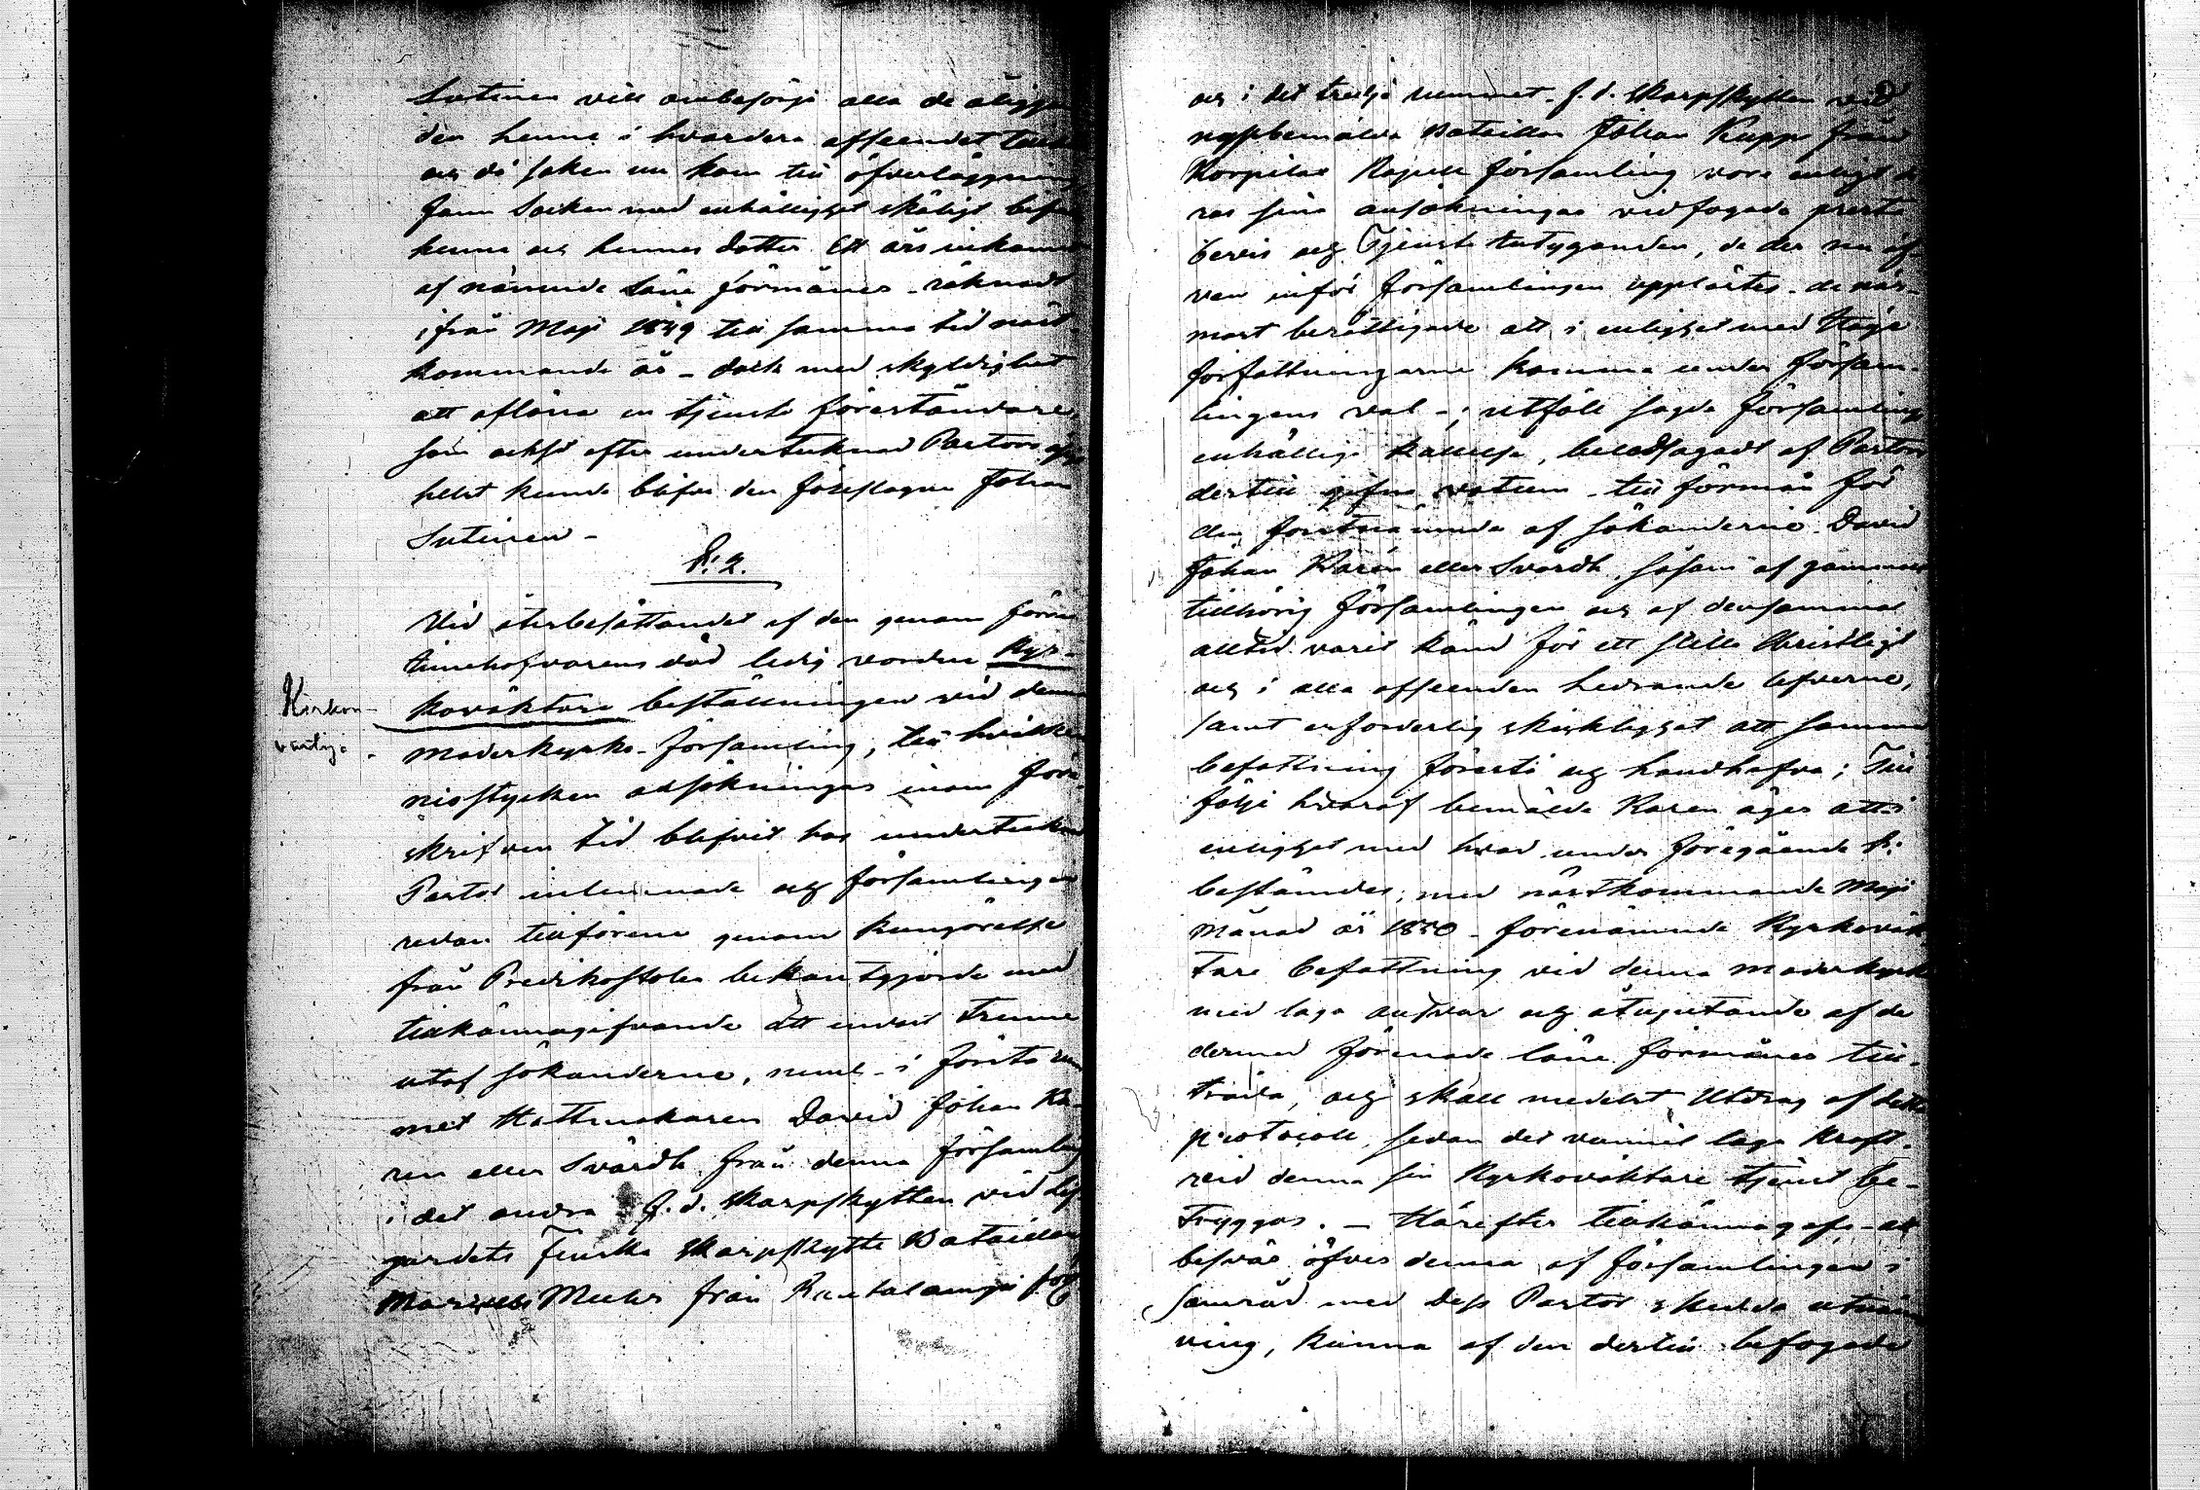 Sutinen vill ombesörja alla de åliggan
den henne i hvardera afseendet
och då saken nu kom till öfverläggning
fann Socknen med enhällighet skäligt
henne och hennes dotter Ett års inkomst
af nämnde Löne förmåner räknadt
ifrån Maji 1849 till samma tid näst
kommande år – dock med skyldighet
att aflöna en tjenste föreståndare,
som efter undertecknad Pastors
helst kunde blifva den föreslagne Johan
Sutinen –
§. 2.
Vid återbesättandet af den genom förra
innehafvarens död ledig vorden Kyr-
Kirkon-
kovaktare beställningen vid denna
vartija
moderkyrko-församling, till hvilken
ansökningar inom före
skrifven tid blifvit hos undertecknad
Pastor inlemnade och församlingen
redan tillförene genom kungörelse
från Predikostolen bekantgjorde med
tillkännagifvande att endast trenne
utaf sökanderne, neml. i första rum
met Hattmakaren David Johan Ka-
ren eller Svärdh från denna församling
i det andra f.d. skarpskytten vid Lif
gardets Finska Skarpskytte Bataillon
från Rautalampi
och i det tredje rummet f.d. Skarpskytten vid
nyssbemälde Bataillon Johan Rapp från
Kapell församling vore enligt de
ras sina ansökningar vidfogade preste
bevis och Tjenste betyganden, de der nu äf
ven inför församlingen upplästes – de när-
mast berättigade att i enlighet med Höga
författningarne komma under försam-
lingens val –; utföll sagde församlings
enhälliga kallelse, beledsagadt af Pastors
dertill gifna votum – till förmån för
den förstnämnda af sökanderne David
Johan Karen eller Svärdh, såsom af gammalt
tillhörig församlingen och af densamma
alltid varit känd för ett stilla Christligt
och i alla afseenden hedrande lefverne,
samt erforderlig skicklighet att samma
befattning förestå och handhafva; Till
följe hvaraf bemälde Karen äger att i
enlighet med hvad under föregående §.
bestämdes, med nästkommande Maji
månad år 1850 – förenämnde Kyrkovak
tare befattning vid denna moderkyrka
med laga ansvar och åtnjutande af de
dermed förenade löne förmåner till-
träda, och skall medelst Utdrag af detta
protocoll, sedan det vunnit laga kraft,
vid denna sin Kyrkovaktare tjenst be-
tryggas. – Härefter tillkännagafs – att
besvär öfver denna af församlingen i
samråd med dess Pastor skedda utnäm
ning, kunna af den dertill befogade